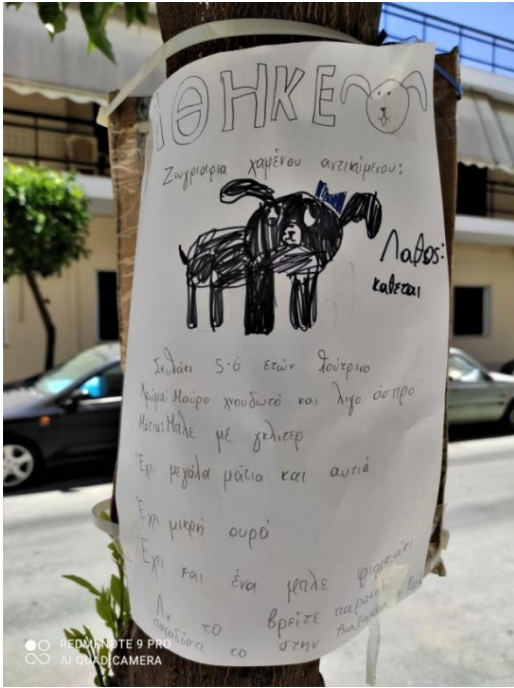 ΑΘΗΚΕ
Ζωγραφια χαμένου αντικείμενου:
Λαθος:
καθεται
Σκυλάκι 5-6 ετών λούτρινο
Χρώμα: Μαύρο χνουδωτό και λίγο άσπρο
Μάτια: Μπλε με γκλιτερ
Έχει μεγάλα μάτια και αυτιά
Έχει μικρή ουρά
Έχει και ένα μπλε φιογκάκι
Αν το βρείτε παρακαλώ
παραδόστε το στην
REDMI NOTE 9 PRO
AI QUAD CAMERA